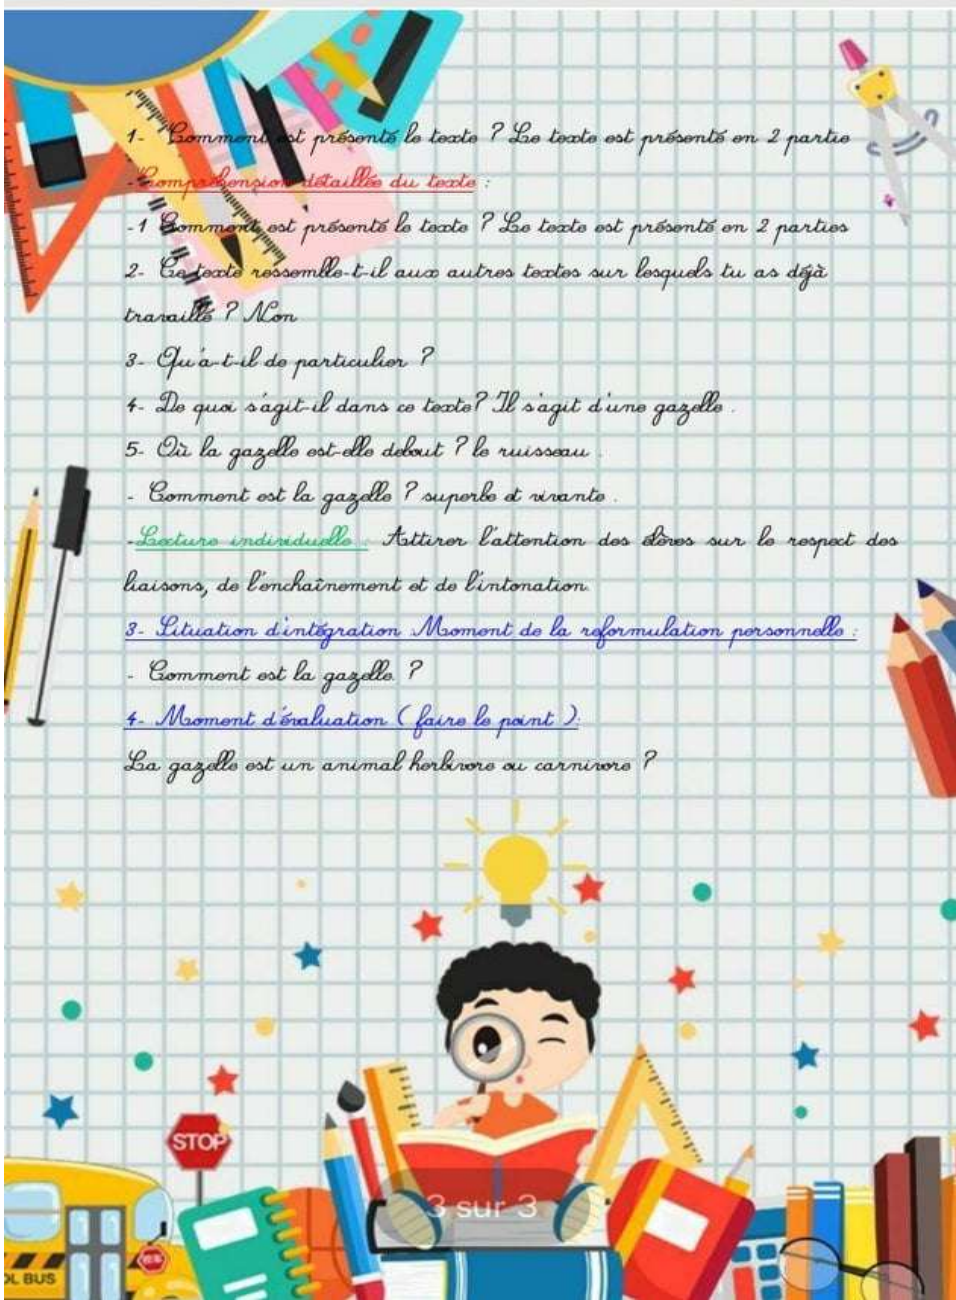 1- Comment est présenté le texte ? Le texte est présenté en 2 partie
-Compréhension détaillée du texte :
-1 Comment est présenté le texte ? Le texte est présenté en 2 parties
2- Ce texte ressemlle-t-il aux autres textes sur lesquels tu as déjà
travaillé ? Non
3- Qu'a-t-il de particulier ?
4- De quoi s'agit-il dans ce texte? Il s'agit d'une gazelle .
5- Où la gazelle est-elle debout ? le ruisseau .
- Comment est la gazelle ? superbe et vivante .
-Lecture individuelle : Attirer l'attention des élèves sur le respect des
liaisons, de l'enchaînement et de l'intonation.
3- Situation d'intégration :Moment de la reformulation personnelle :
- Comment est la gazelle. ?
4- Moment d'évaluation ( faire le point ):
La gazelle est un animal herbivore ou carnivore ?
STOP
3 sur 3
OL BUS